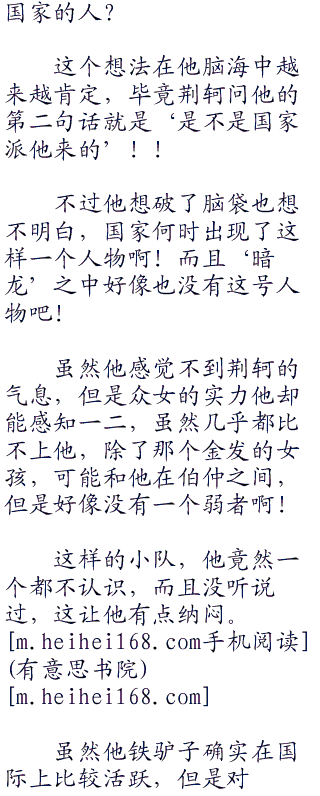 国家的人?
这个想法在他脑海中越
来越肯定，毕竟荆轲问他的
第二句话就是‘是不是国家
派他来的’！！
不过他想破了脑袋也想
不明白，国家何时出现了这
样一个人物啊！而且‘暗
龙’之中好像也没有这号人
物吧！
虽然他感觉不到荆轲的
气息，但是众女的实力他却
能感知一二，虽然几乎都比
不上他，除了那个金发的女
孩，可能和他在伯仲之间，
但是好像没有一个弱者啊！
这样的小队，他竟然一
个都不认识，而且没听说
过，这让他有点纳闷。
[m.heihei168.com手机阅读]
(有意思书院)
[m.heihei168.com]
虽然他铁驴子确实在国
际上比较活跃，但是对